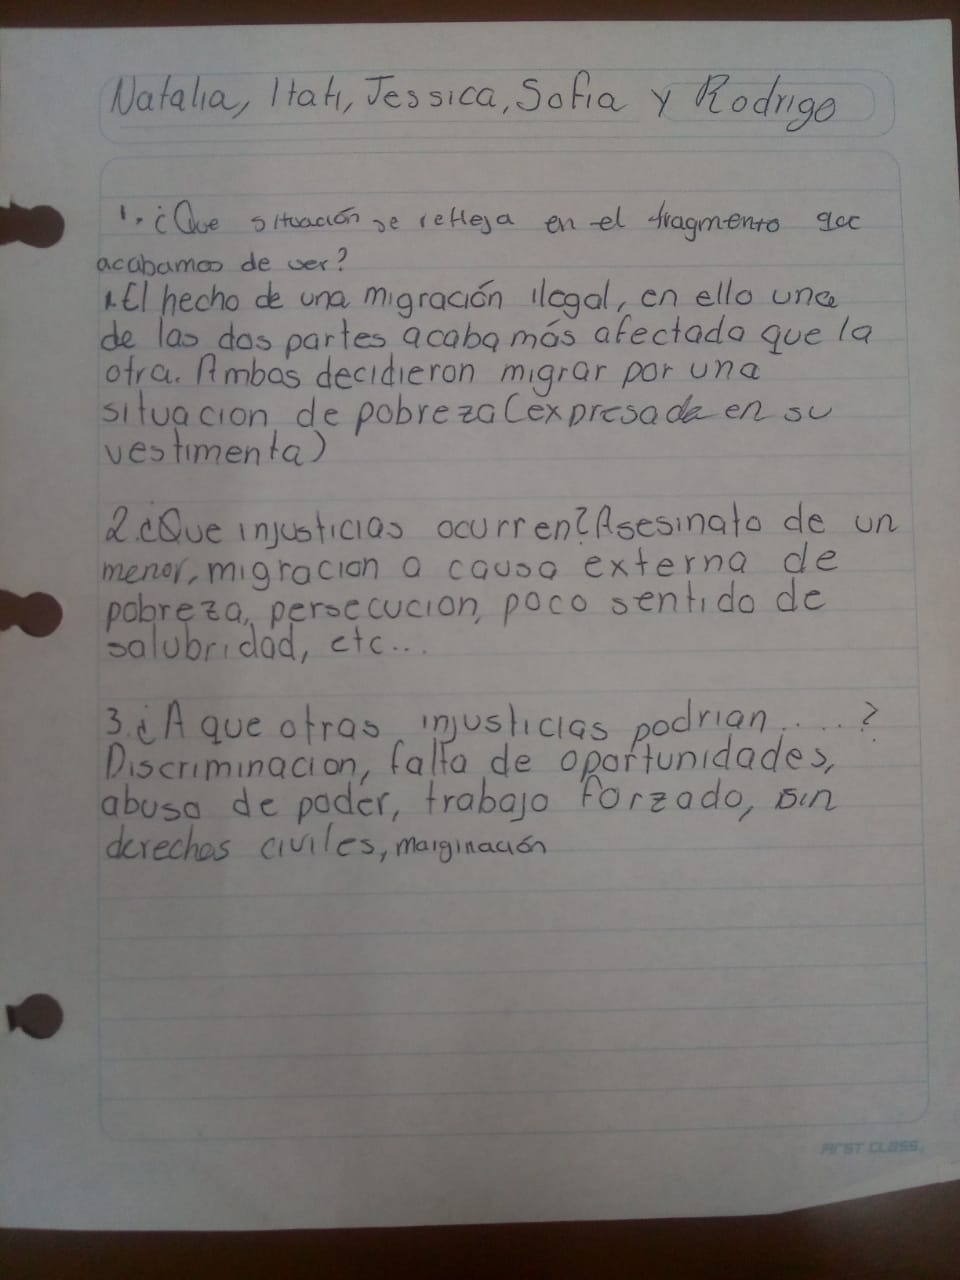 Natalia, Itati, Jessica, Sofia y Rodrigo
1. ¿Que situación se refleja en el fragmento que
acabamos de ver?
1. El hecho de una migración ilegal, en ello una
de las dos partes acaba más afectada que la
otra. Ambas decidieron migrar por una
situacion de pobreza (expresada en su
vestimenta)
2. ¿Que injusticias ocurren? Asesinato de un
menor, migracion a causa externa de
pobreza, persecucion, poco sentido de
salubridad, etc...
3. ¿A que otras injusticias podrian .....?
Discriminacion, falta de oportunidades,
abuso de poder, trabajo forzado, sin
derechos civiles, marginación
FIRST CLASS